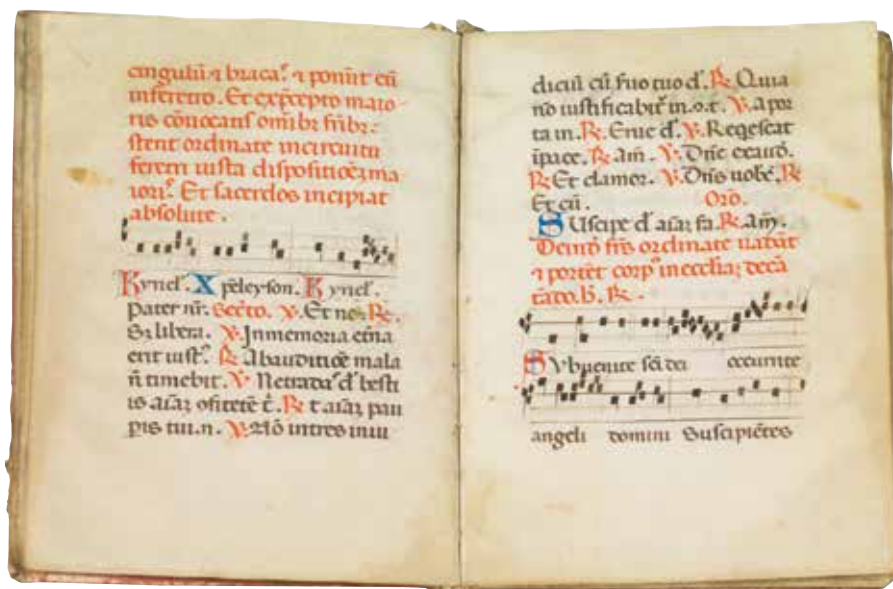 cingulū ⁊ braca⁹. ⁊ ponūt eū
inferetro. Et exp̄cepto maio-
ris cōuocans om̄ibꝫ fr̄ibꝫ.
stent ordinate incircuitu
feretri iusta dispositiōeꝫ ma
iori⁹. Et sacerdos incipiat
absolute.
Kyriel'. Xp̄eleyson. Kyriel'.
Pater nr̄. Secēto. ℣. Et ne nos. ℟.
Sꝫ libera. ℣. Inmemoria et̄na
erit iust⁹. ℟. Abauditiōe mala
n̄ timebit. ℣. Netradas d' besti
is aīaꝫ ofitētē t̄. ℟. ⁊ aīaꝫ pau
pis tui. n. ℣. Nō intres iniu
diciū cū suo tuo d'. ℟. Quia
nō iustificabit̄ in. o. t. ℣. apor
ta in. ℟. Erue d'. ℣. Reqescat
īpace. ℟. am̄. ℣. Dn̄e exaud.
℟. Et clamor. ℣. Dn̄s uobc̄. ℟.
Et cū. Orō.
SUscipe d' aīaꝫ fa. ℟. am̄.
Deinō fr̄s ordinate uadāt
⁊ portēt corp⁹ inecclīa; decā
tādo. h̄. ℟.
Subuenite sc̄i dei occurrite
angeli domini Suscipiētes